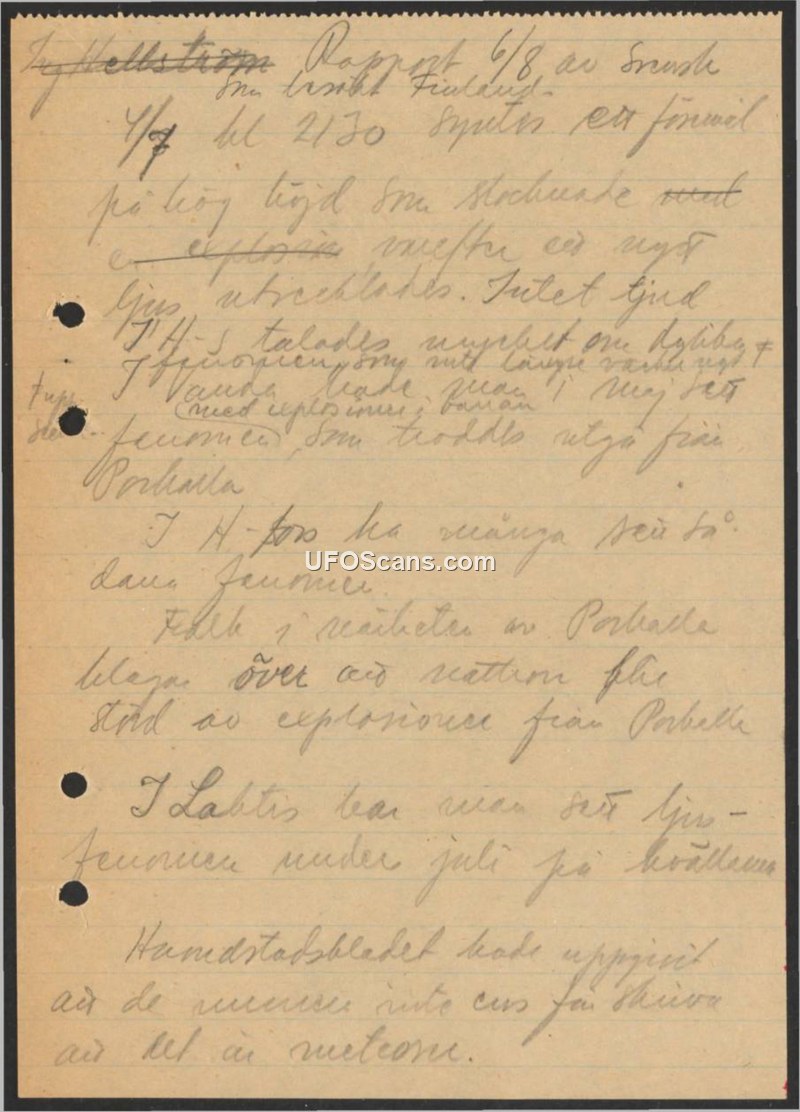 Ing Hellström Rapport 6/8 av svensk
som besökt Finland.
4/7 kl 2130 syntes ett föremål
på hög höjd som slocknade med
en explosion varefter ett nytt
ljus utvecklades. Intet ljud
I H-s talades mycket om dylika
fenomen, som inte längre var nytt
I hade man i maj sett
med explosioner i banan
fenomen, som troddes utgå från
Porkalla
I H-fors ha många sett så-
dana fenomen.
Folk i närheten av Porkalla
klagar över att nattron blir
störd av explosioner från Porkalla
I Lahtis har man sett ljus-
fenomen under juli på kvällarna
Huvudstadsbladet hade uppgivit
att de numera inte ens får skriva
att det är meteorer.
UFOScans.com